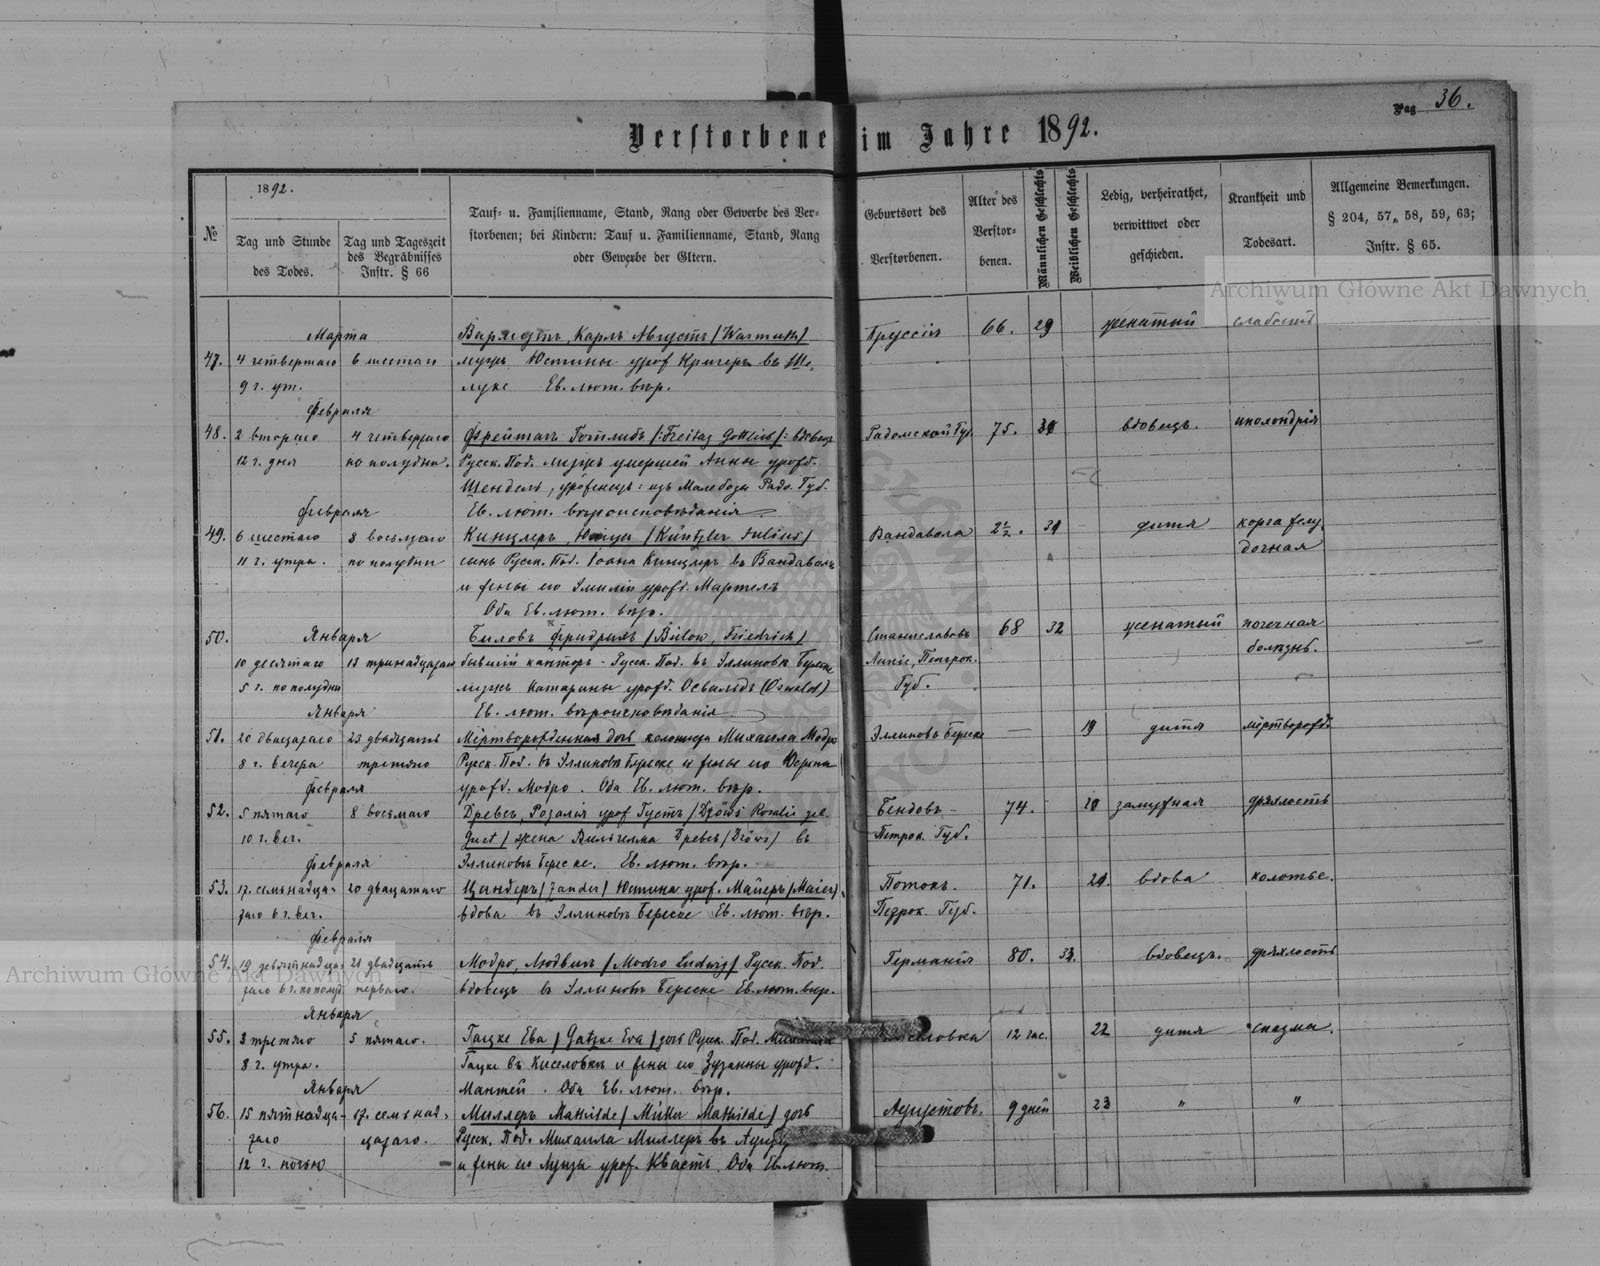 Pag 36.
Verstorbene im Jahre 1892.
1892.
№
Tag und Stunde
des Todes.
Tag und Tageszeit
des Begräbnisses
Instr. § 66
Tauf- u. Familienname, Stand, Rang oder Gewerbe des Ver-
storbenen; bei Kindern: Tauf u. Familienname, Stand, Rang
oder Gewerbe der Eltern.
Geburtsort des
Verstorbenen.
Alter des
Verstor-
benen.
Männlichen Geschlechts
Weiblichen Geschlechts
Ledig, verheirathet,
verwittwet oder
geschieden.
Krankheit und
Todesart.
Allgemeine Bemerkungen.
§ 204, 57, 58, 59, 63;
Instr. § 65.
Archiwum Główne Akt Dawnych
Марта Карлъ Августъ /Warmuth/ Пруссія 66. 29 женатый слабость
47. 4 четвертаго 6 шестаго мужъ Юстины урож Кригеръ въ
9 ч. ут. Ев. лют. вѣр.
Февраля
48. 2 втораго 4 четвертаго Фрейтагъ Готлибъ /:Freitag Gottlieb/: вдовецъ Радомской Губ. 75. вдовецъ.
12 ч. дня по полудни. Русск. Под. мужъ умершей Анны урожд.
Шендель, уроженецъ: изъ Радо. Губ.
Февраля Ев. лют. вѣроисповѣданія
49. 6 шестаго 8 восьмаго Кинцлеръ, /Küntzler Julius/ Вандавола 2½. 31 дитя
11 ч. утра. по полудни сынъ Русск. Под. Іоана Кинцлеръ въ Вандаволѣ
и жены его Эмиліи урожд. Мартель
Оба Ев. лют. вѣр.
50. Января Биловъ Фридрихъ /Bülow, Friedrich/ Станиславовъ 68 32 женатый почечная
10 десятаго 13 бывшій канторъ - Русск. Под. въ Эллиновѣ Петрок. болѣзнь.
5 ч. по полудни мужъ Катарины урожд. Освальдъ (Oswald) Губ.
Января Ев. лют. вѣроисповѣданія
51. 20 23 двадцать Мертворожденная дочь колониста Михаила Модро Эллиновъ Береске — 19 дитя
8 ч. вечера третяго Русск. Под. въ Эллиновѣ Береске и жены его
Февраля урожд. Модро. Оба Ев. лют. вѣр.
52. 5 пятаго 8 восьмаго Древсъ, Розалія урож Густъ / Rosalie geb. Бендовъ - 74. 20 замужная дряхлость
10 ч. веч. Gust/ жена Вильгелма Древсъ /Dröws/ въ Петрок. Губ.
Февраля Эллиновѣ Береске. Ев. лют. вѣр.
53. 17. семьнадца- 20 двацатаго Цандеръ /Zander/ Юстина урож. Майеръ /Maier/ Потокъ. 71. 21. вдова колотье.
таго 6 ч. веч. вдова въ Эллиновѣ Береске Ев. лют. вѣр. Петрок. Губ.
Февраля
54. 19 девятнадца- 21 двадцать Модро, Людвигъ /Modro Ludwig/ Русск. Под. Германія 80. 33. вдовецъ. дряхлость
таго 6 ч. по полуд. перваго. вдовецъ въ Эллиновѣ Береске Ев. лют. вѣр.
Archiwum Główne Akt Dawnych
Января
55. 3 третяго 5 пятаго. Гацке Ева /Gatzke Eva/ дочь Русск. Под. 12 час. 22 дитя спазма.
8 ч. утра. Гацке въ Киселовкѣ и жены его Зузанны урожд.
Января Мантей. Оба Ев. лют. вѣр.
56. 15 пятнадца- 17. семьнад- Миллеръ Mathilde /Müller Mathilde/ дочь Августовъ. 9 дней 23 " "
таго цатаго. Русск. Под. Михаила Миллеръ въ
12 ч. ночью и жены его Луизы урож. Квастъ. Оба Ев. лют.